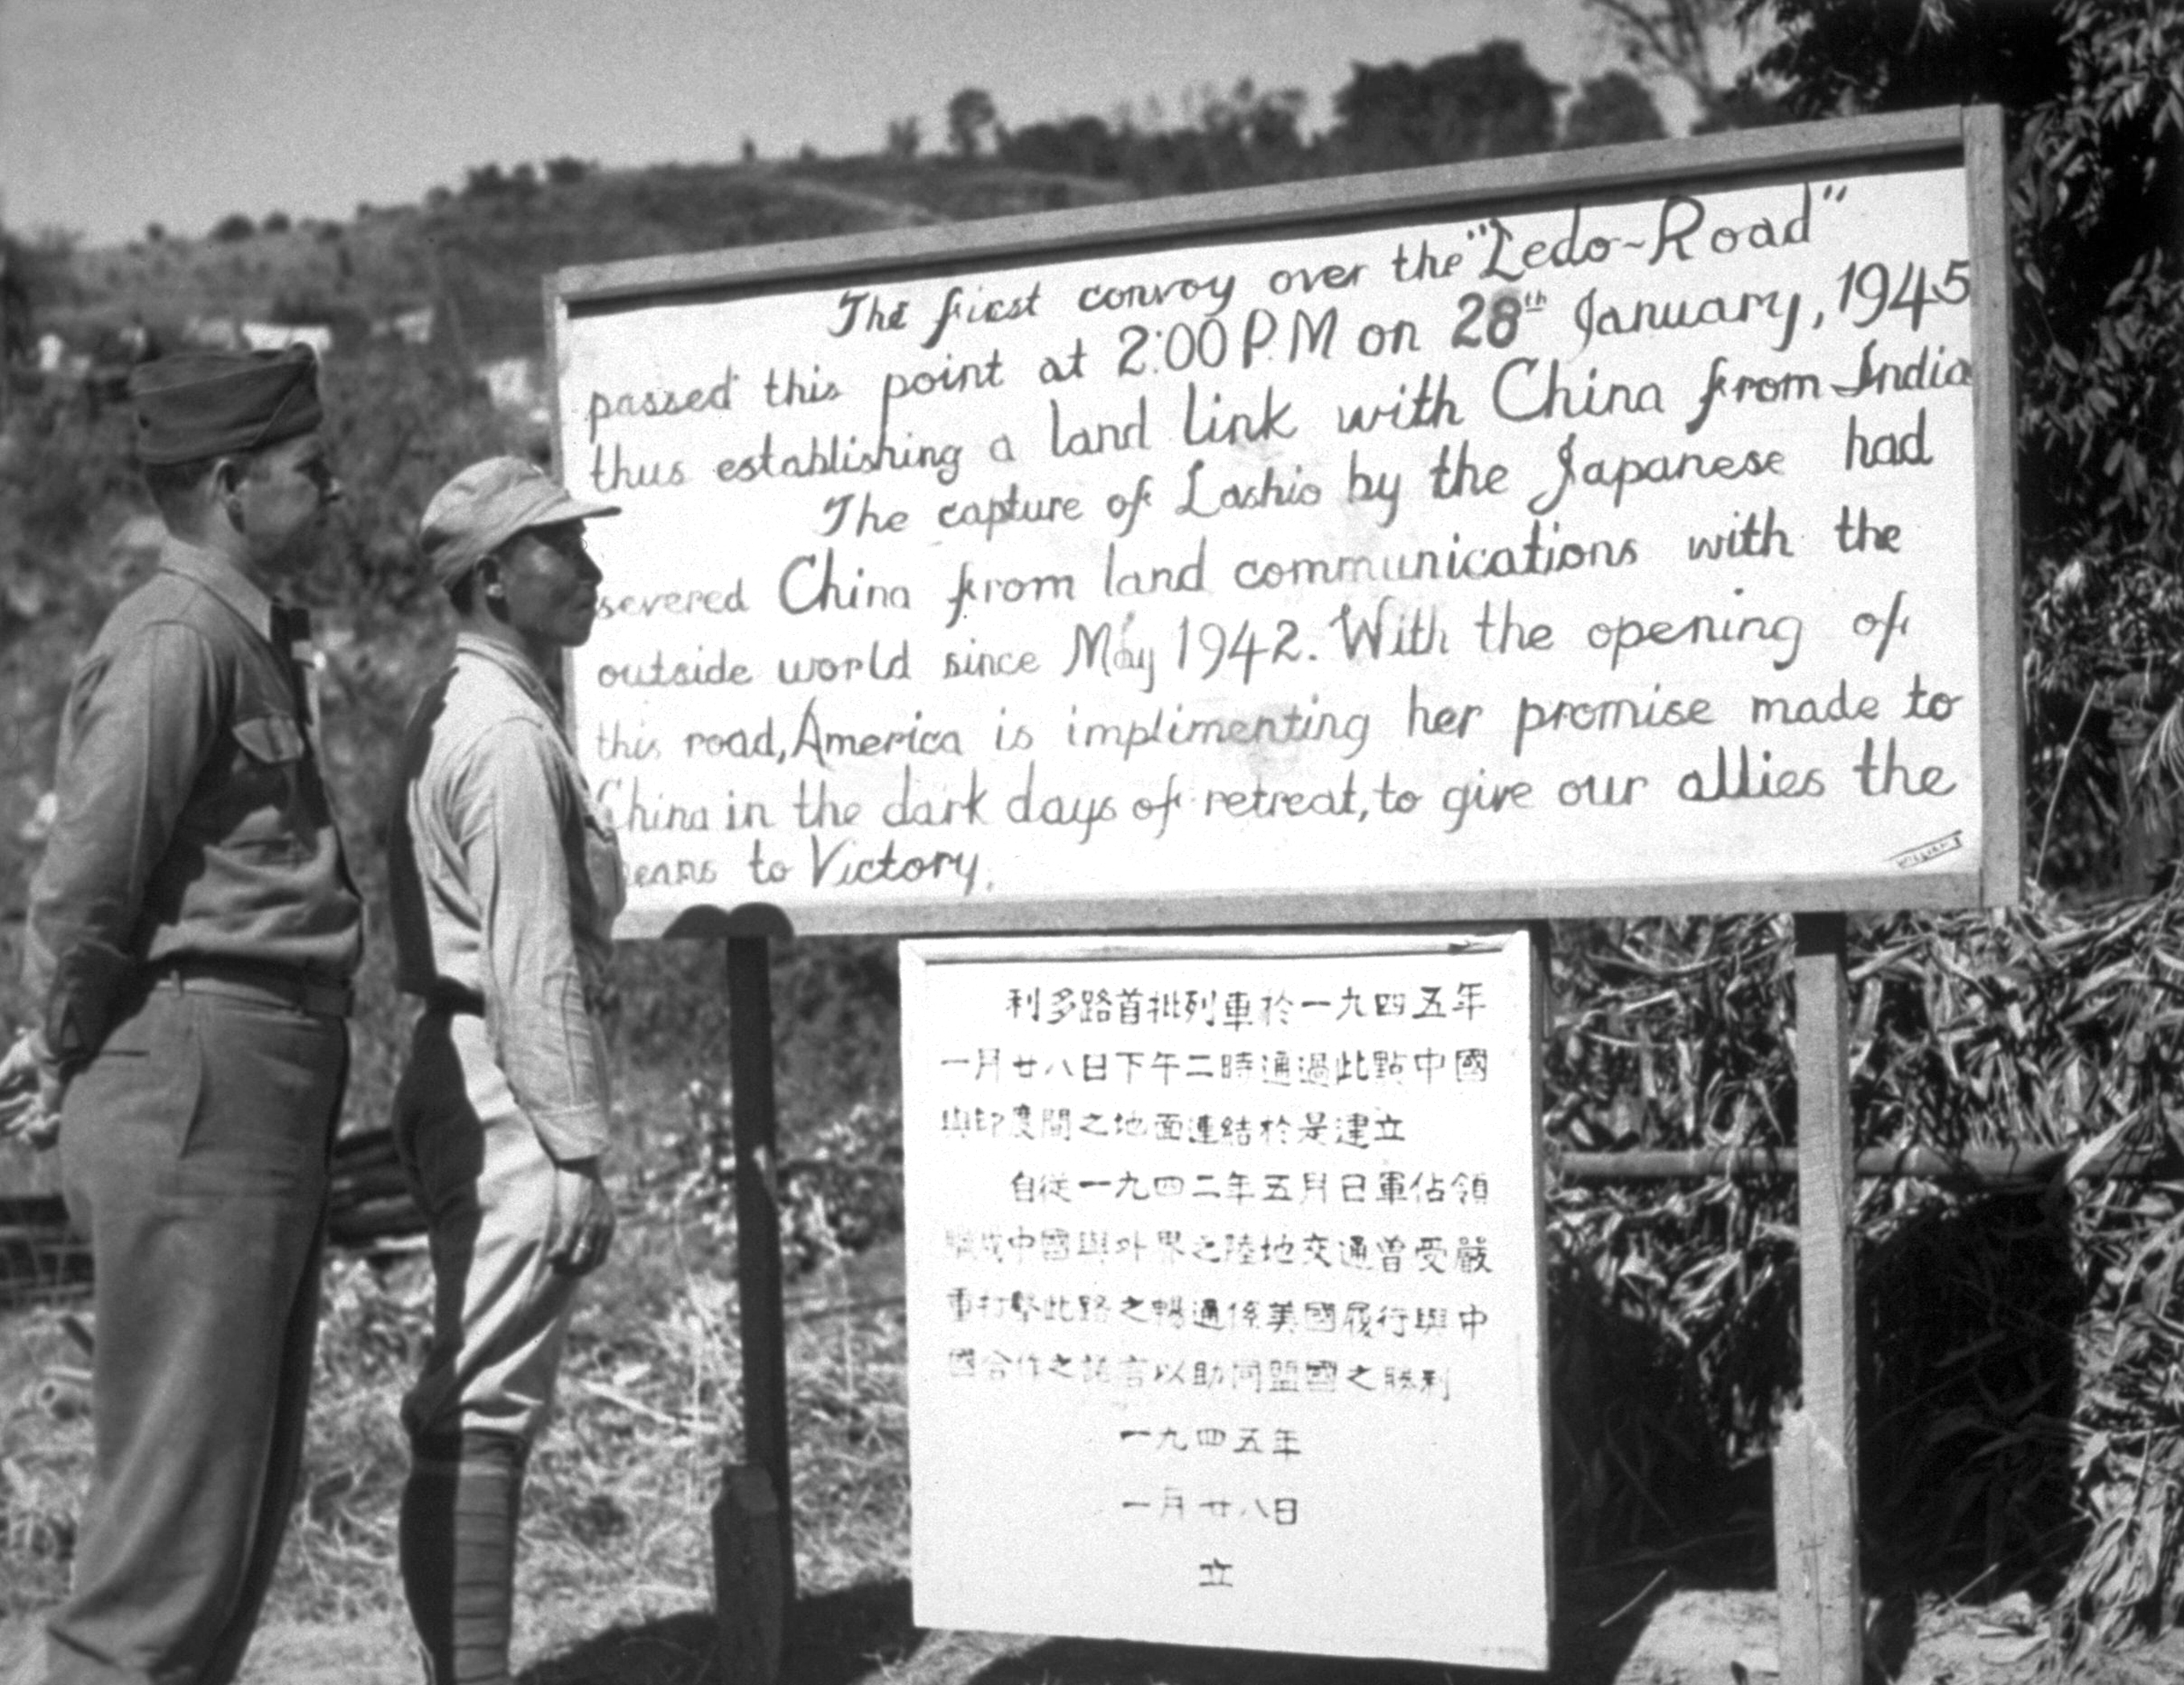 The first convoy over the "Ledo~Road"
passed this point at 2:00 P.M on 28th January, 1945
thus establishing a land link with China from India
The capture of Lashio by the Japanese had
severed China from land communications with the
outside world since May 1942. With the opening of
this road, America is implimenting her promise made to
China in the dark days of retreat, to give our allies the
means to Victory.
利多路首批列車於一九四五年
一月廿八日下午二時通過此點中國
與印度間之地面連結於是建立
自從一九四二年五月日軍佔領
臘戌中國與外界之陸地交通曾受嚴
重打擊此路之暢通係美國履行與中
國合作之諾言以助同盟國之勝利
一九四五年
一月廿八日
立